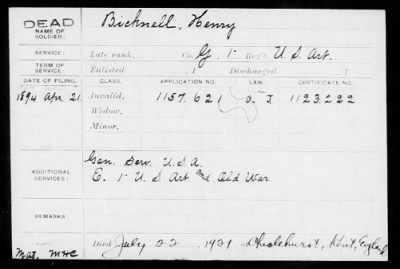 DEAD
NAME OF SOLDIER: Bicknell, Henry
SERVICE: Late rank, Co. G, 1 Reg't U. S. Art.
TERM OF SERVICE: Enlisted , 1 Discharged , 1
DATE OF FILING. CLASS. APPLICATION NO. LAW. CERTIFICATE NO.
1894 Apr. 21 Invalid, 1157.621 O. J. 1123.222
Widow,
Minor,
ADDITIONAL SERVICES: Gen. Serv. U. S. A.
E. 1 U. S. Art. Old War
REMARKS:
Died July 22, 1921 at Chislehurst, Kent, England
Mat. MHC